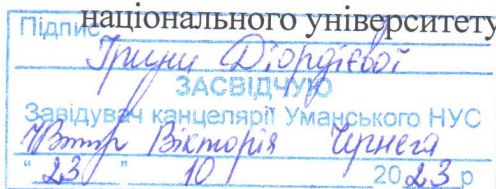 національного університету
Підпис
Ірини Діордієвої
ЗАСВІДЧУЮ
Завідувач канцелярії Уманського НУС
Вікторія Чернега
"23" 10 2023 р